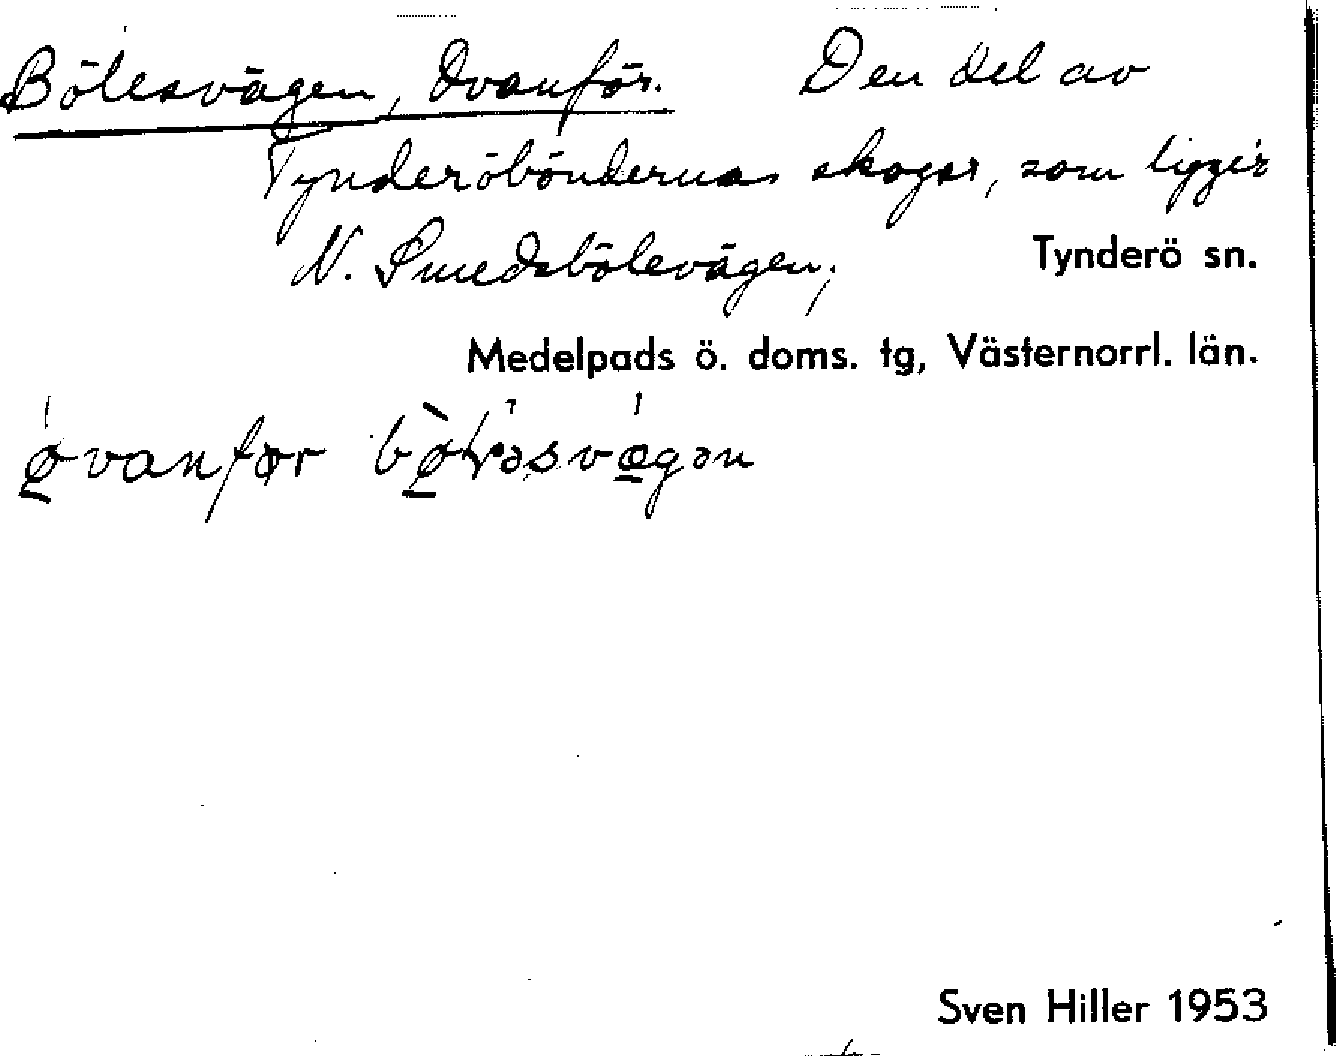 Bölesvägen, Ovanför. Den del av
Tynderöböndernas skogar, som ligger
N. Smedsbölevägen;
Tynderö sn.
Medelpads ö. doms. tg, Västernorrl. län.
øvanfør bøləsvægən
Sven Hiller 1953